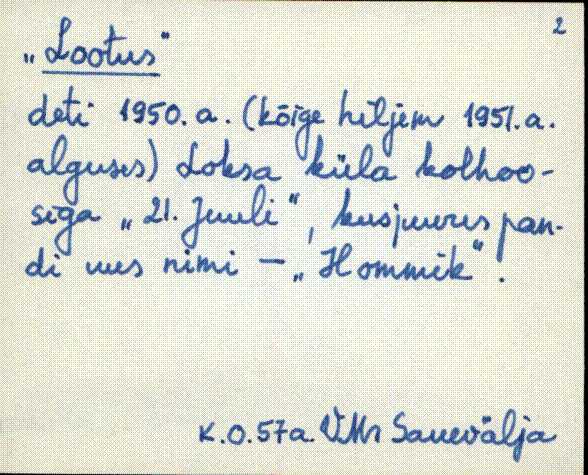 2
„Lootus"
deti 1950. a. (kõige hiljem 1951. a.
alguses) Loksa küla kolhoo-
siga „21. Juuli", kusjuures pan-
di uus nimi — „Hommik".
K.O. 57a. VMr Sauevälja